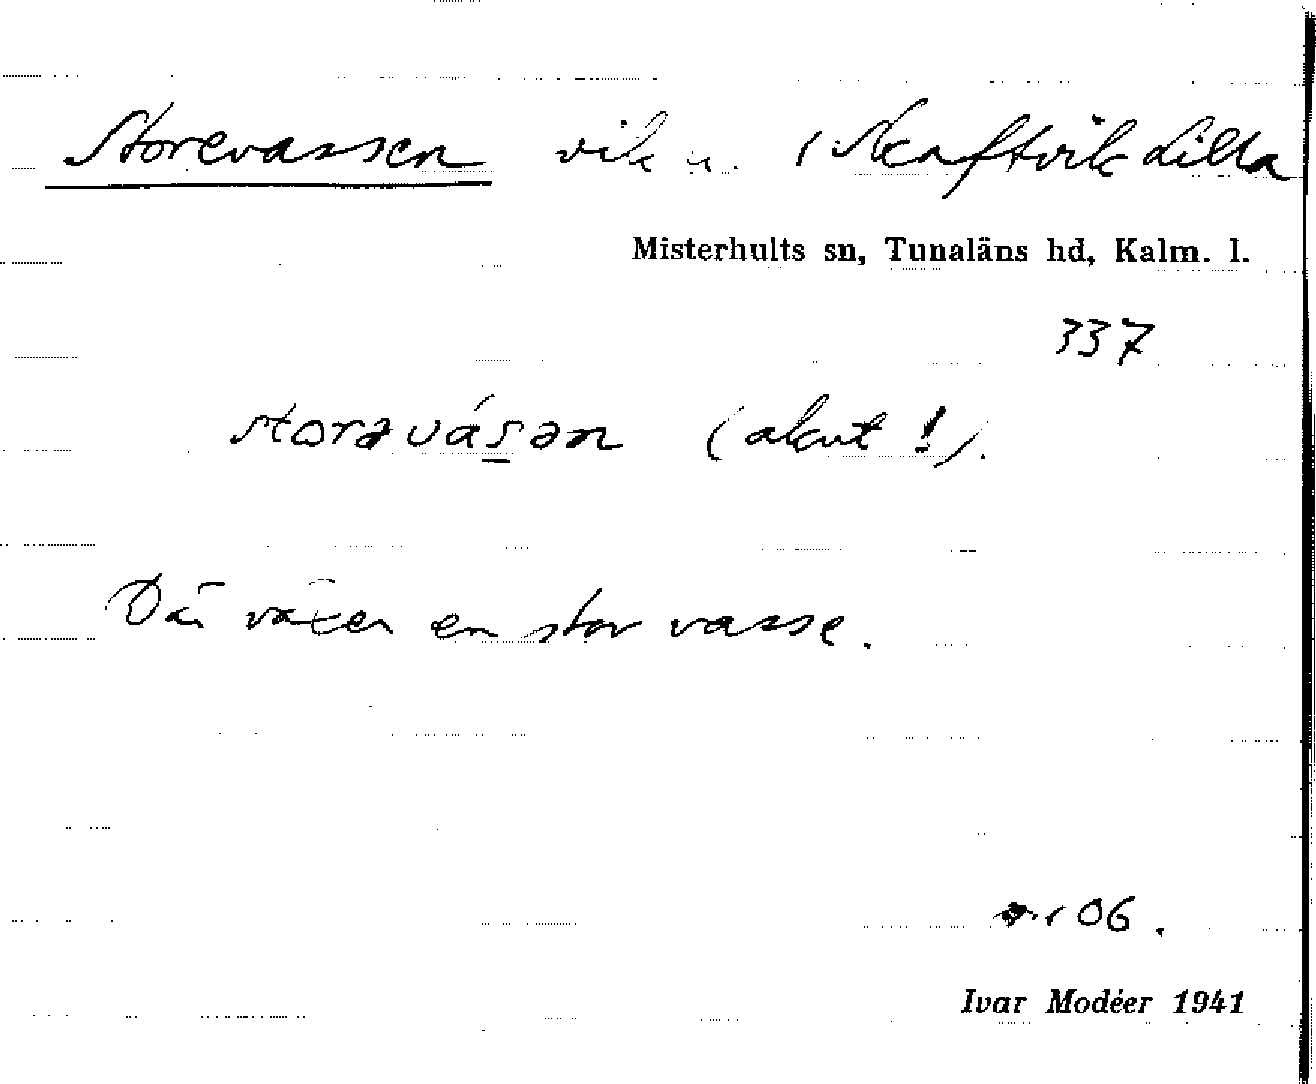 Storevassen vik u. Skaftvik Lilla
Misterhults sn, Tunaläns hd, Kalm. l.
337
storəvásən (akut!).
Där växer en stor vasse.
06.
Ivar Modéer 1941